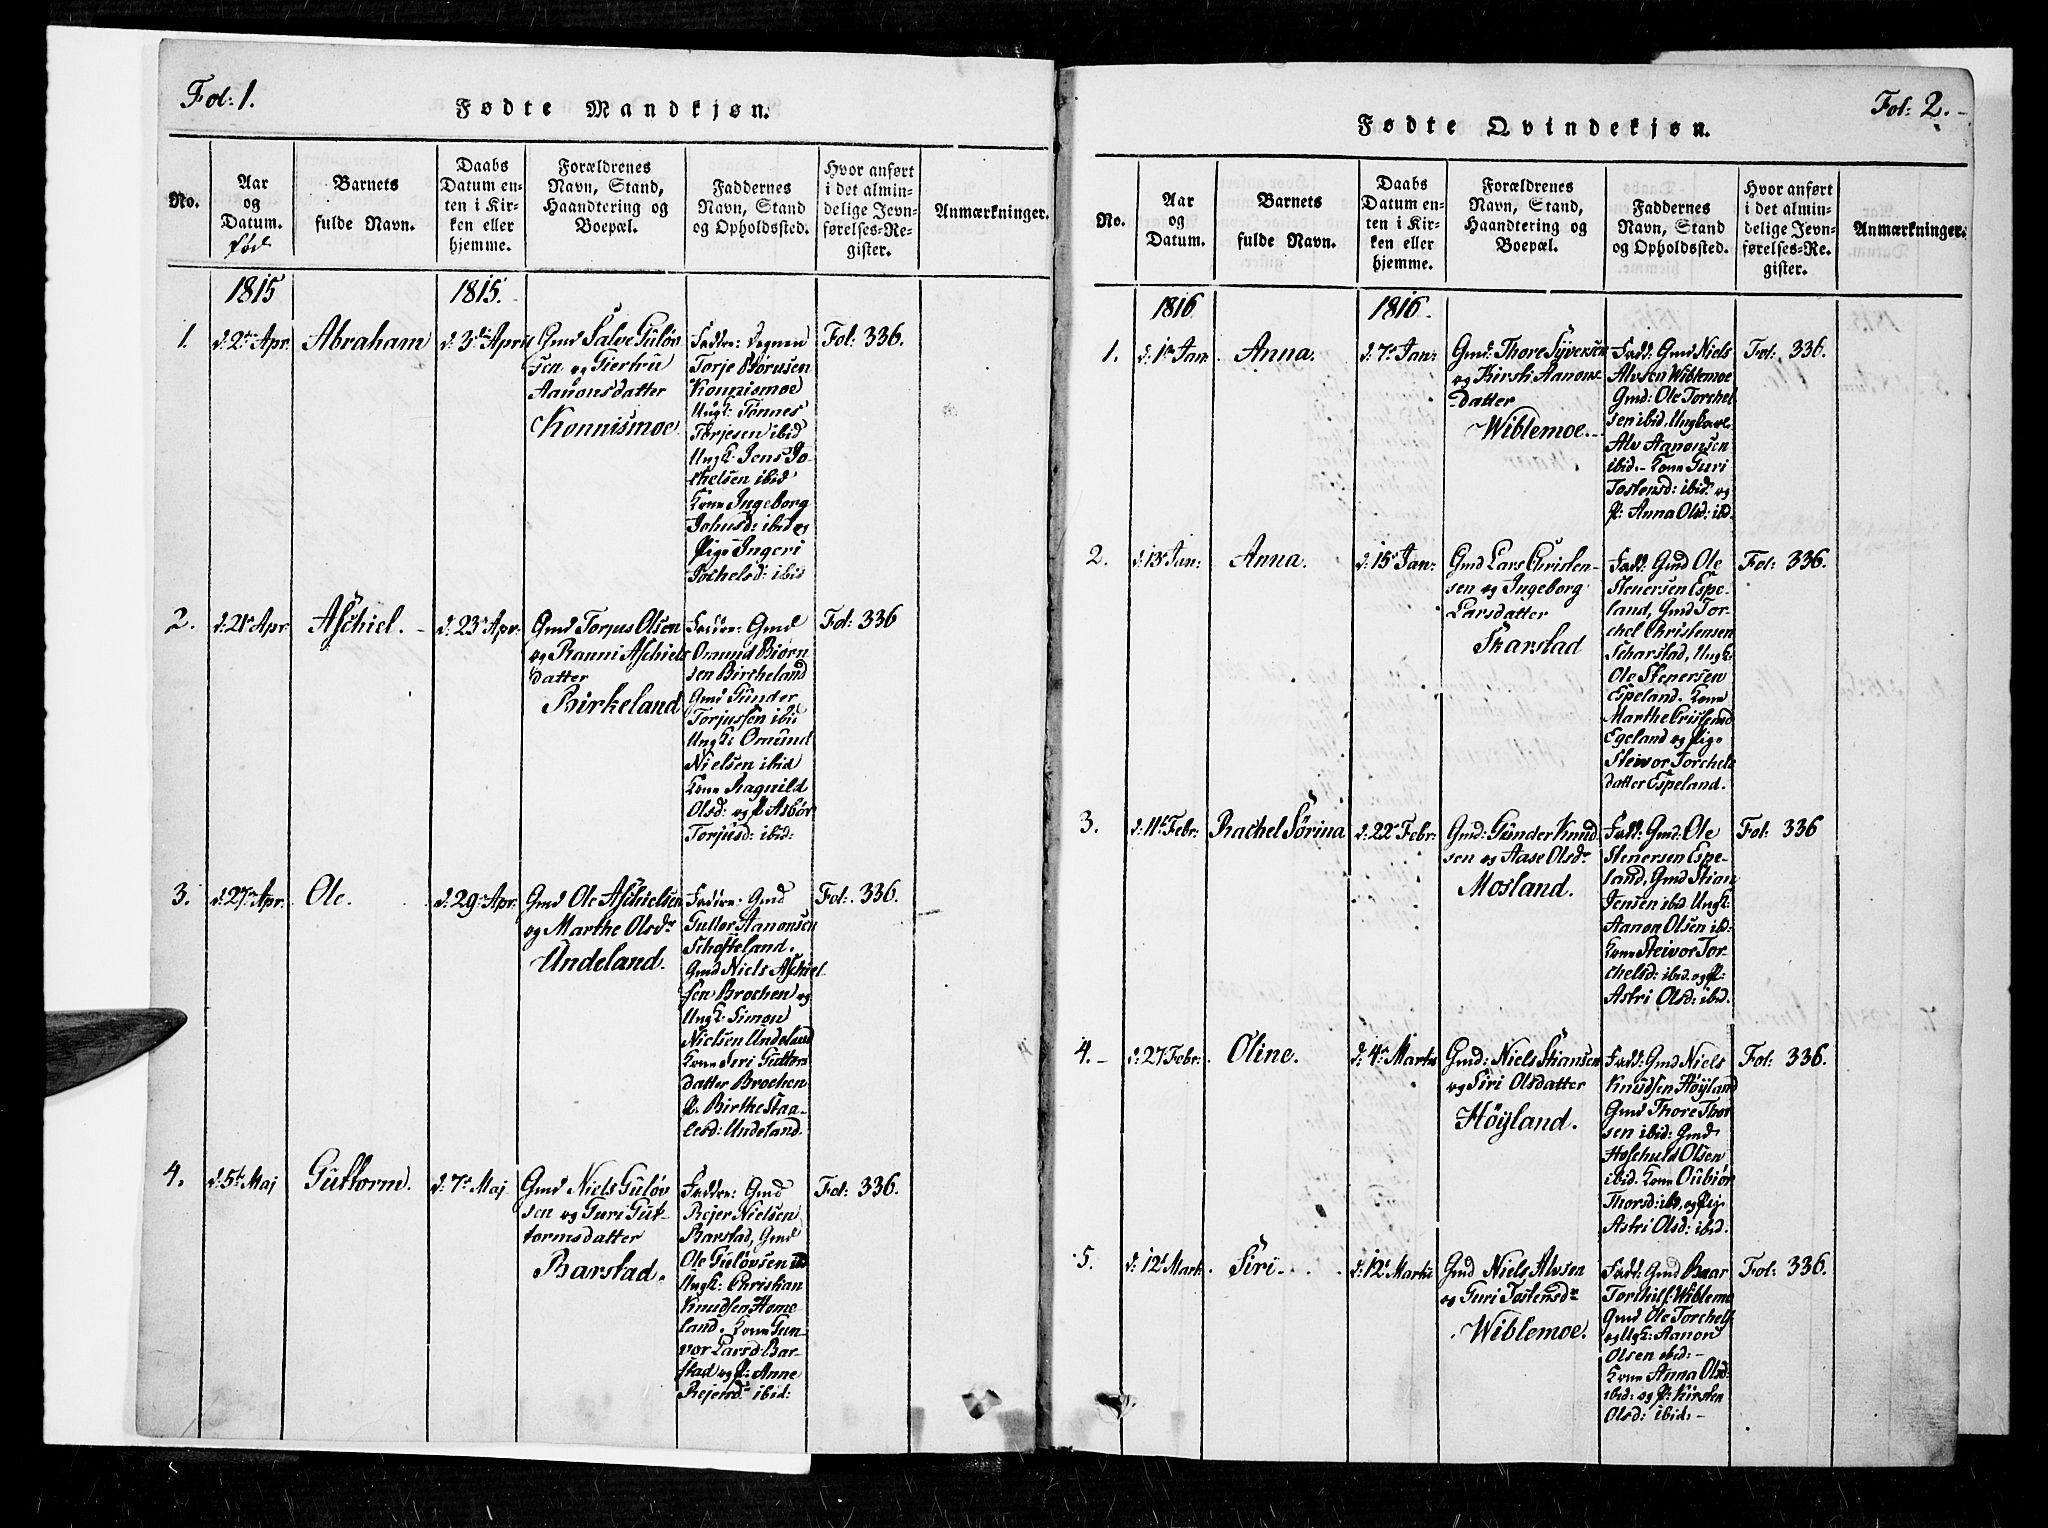 Fol: 1.
Fødte Mandkjøn.
No.
Aar
og
Datum.
fød
Barnets
fulde Navn.
Daabs
Datum en-
ten i Kir-
ken eller
hjemme.
Forældrenes
Navn, Stand,
Haandtering og
Boepæl.
Faddernes
Navn, Stand
og Opholdssted.
Hvor anført
i det almin-
delige Jevn-
førelses-Re-
gister.
Anmærkninger.
1815
1815.
1.
d: 2den Apr
Abraham
d: 3die April
Gmd Salve Guløv
sen og Giertru
Aanonsdatter
Konnismoe.
Faddre: Degnen
Torje Børusen
Konnismoe
Ungk: Tønnes
Torjesen ibid
Ungk: Jens Jo-
chelsen ibid
Kone Ingeborg
Johusd: ibid og
Pige Ingeri
Tochelsd: ibid
Fol: 336.
2.
d: 21de Apr
Aschiel.
d: 23de Apr:
Gmd Torjus Olsen
og Ranni Aschiels
datter
Birkeland
Faddre: Gmd
Omund Biørn
sen Bircheland
Gmd Gunder
Torjussen ibid
Ungk: Omund
Nielsen ibid
Kone Ragnild
Olsd: og P: Asbør
Torjusd: ibid:
Fol: 336
3.
d: 27de Apr:
Ole.
d: 29de Apr.
Gmd Ole Aschielsen
og Marthe Olsdr
Undeland.
Faddre: Gmd
Gullov Aanonsen
Schofteland.
Gmd Niels Aschiel
sen Brochen og
Ungk: Simon
Nielsen Undeland
Kone Siri Guttorms
datter Brochen
P: Birthe Staa-
lesd: Undeland.
Fol: 336.
4.
d: 5te Maj
Guttorm.
d: 7de Maj
Gmd Niels Guløv
sen og Guri Gut-
tormsdatter
Barstad.
Faddre: Gmd
Rejer Nielsen
Barstad, Gmd
Ole Guløvsen ibd
Ungk: Christian
Knudsen Home-
land. Kone Gun-
vor Larsd: Bar-
stad og P: Anne
Rejersd: ibid:
Fol: 336.
Fol: 2.
Fødte Qvindekjøn.
No.
Aar
og
Datum.
Barnets
fulde Navn.
Daabs
Datum en-
ten i Kir-
ken eller
hjemme.
Forældrenes
Navn, Stand,
Haandtering og
Boepæl.
Faddernes
Navn, Stand
og Opholdssted.
Hvor anført
i det almin-
delige Jevn-
førelses-Re-
gister.
Anmærkninger.
1816
1816.
1.
d: 1te Jan:
Anna.
d: 7de Jan:
Gmd: Thore Syversen
og Kirsti Aanons
datter
Wiblemoe.
Fadd: Gmd Niels
Alvsen Wiblemoe
Gmd: Ole Torchel
sen ibid, Ungkarl
Alv Aanonsen
ibid. Kone Guri
Tostensd: ibid: og
P: Anna Olsd: ibd.
Fol: 336.
2.
d: 13de Jan:
Anna.
d: 15de Jan:
Gmd Lars Christen-
sen og Ingeborg
Larsdatter
Skarstad
Fadd: Gmd Ole
Stenersen Espe-
land, Gmd Tor-
chel Christensen
Scharstad, Ungk:
Ole Stenersen
Espeland. Kone
Marthe Cristensd
Egeland og Pige
Steivor Torchels
datter Espeland.
Fol: 336.
3.
d: 11te Febr:
Rachel Sørina
d: 22de Febr:
Gmd: Gunder Knud
sen og Aase Olsdr
Mosland.
Fadd: Gmd: Ole
Stenersen Espe-
land: Gmd Stian
Jensen ibid Ungk:
Aanon Olsen ibd:
Kone Steivor Tor-
chelsd: ibid. og P:
Astri Olsd: ibid.
Fol: 336
4.
d: 27 Febr:
Oline.
d: 4de Martii
Gmd: Niels Stiansen
og Siri Olsdatter
Høyland.
Fadd: Gmd Niels
Knudsen Høyland
Gmd Thore Thor
sen ibid: Gmd
Hoschuld Olsen
ibid. Kone Oubiør
Thorsd: ibd, og Pig
Astri Olsd: ibid.
Fol: 336.
5.
d: 12te Mart:
Siri
d: 12te Martii
Gmd Niels Alvsen
og Guri Tostensdr
Wiblemoe.
Fadd: Gmd Baar
Torkils: Wiblemo
Gmd Ole Torchels
og Ugk: Aanon
Olsen ibid:
Kone Anna Olsd:
ibid: og P: Kirsten
Olsd: ibid:
Fol: 336.